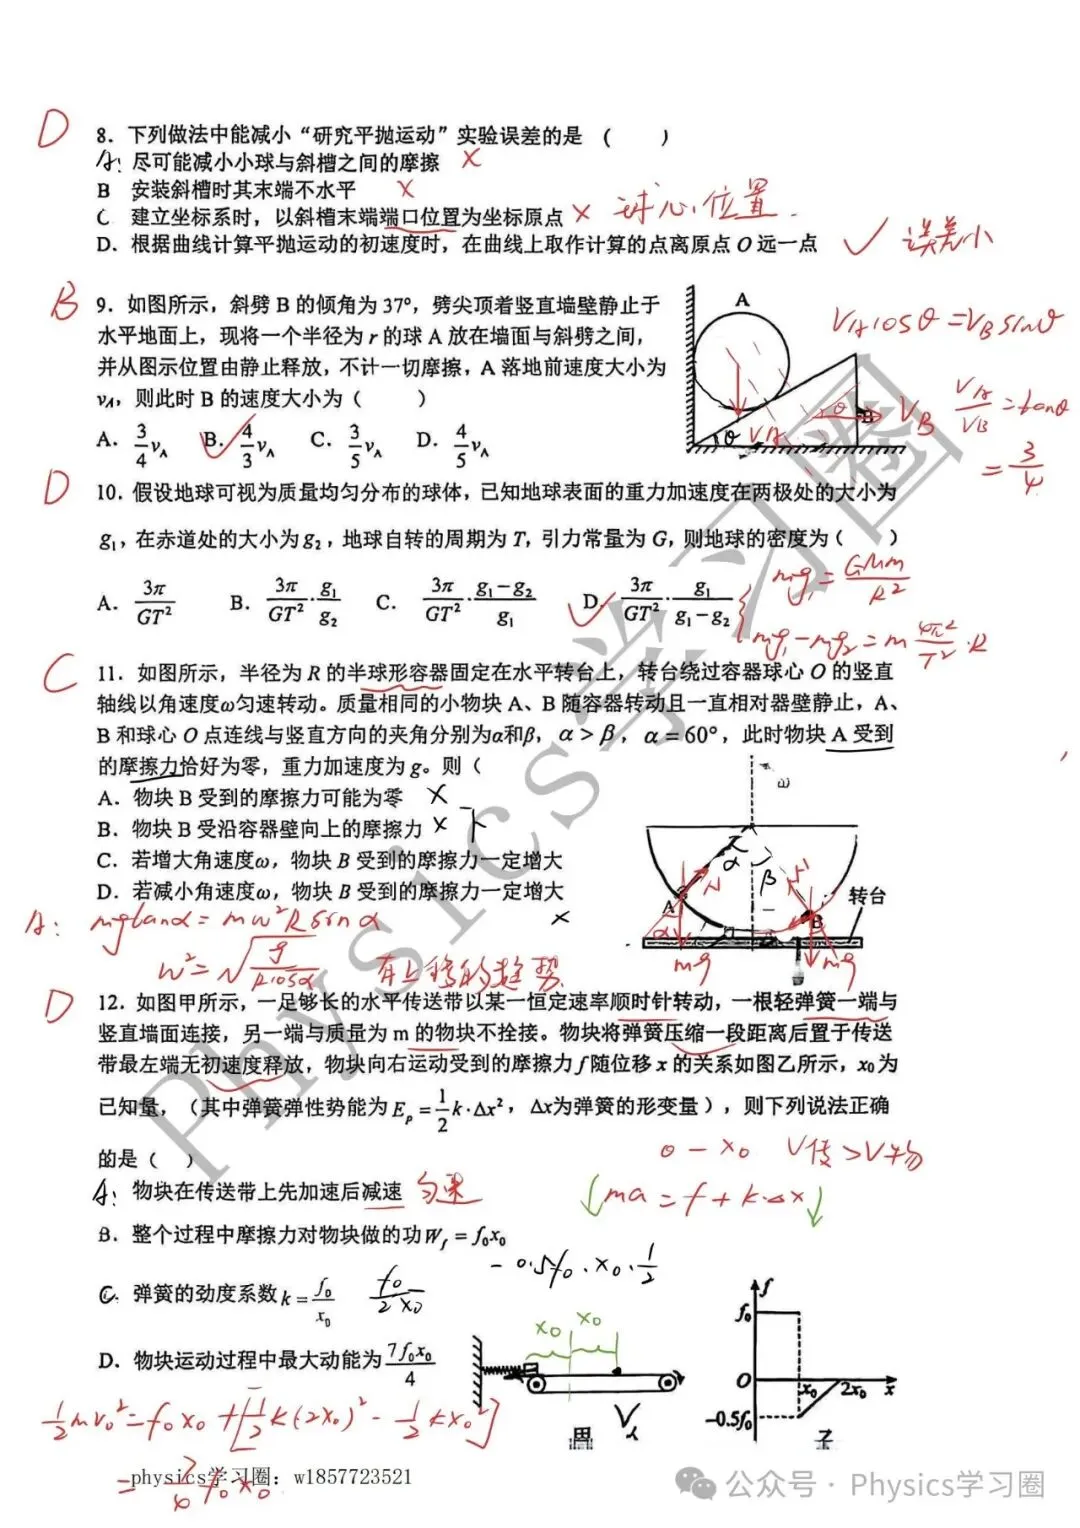 D
8．下列做法中能减小“研究平抛运动”实验误差的是（　　）
A．尽可能减小小球与斜槽之间的摩擦 ×
B 安装斜槽时其末端不水平 ×
C．建立坐标系时，以斜槽末端端口位置为坐标原点 × 球心位置.
D．根据曲线计算平抛运动的初速度时，在曲线上取作计算的点离原点 O 远一点 ✓ 误差小
B
9．如图所示，斜劈 B 的倾角为 37°，劈尖顶着竖直墙壁静止于
水平地面上，现将一个半径为 r 的球 A 放在墙面与斜劈之间，
并从图示位置由静止释放，不计一切摩擦，A 落地前速度大小为
vA，则此时 B 的速度大小为（　　）
A. 3/4 vA B. ✓ 4/3 vA C. 3/5 vA D. 4/5 vA
A
θ
VA
θ
B
VB
VAcosθ=VBsinθ
VA/VB=tanθ
=3/4
D
10．假设地球可视为质量均匀分布的球体，已知地球表面的重力加速度在两极处的大小为
g1，在赤道处的大小为 g2，地球自转的周期为 T，引力常量为 G，则地球的密度为（　　）
A. 3π/GT² B. 3π/GT²·g1/g2 C. 3π/GT²·(g1－g2)/g1 D. ✓ 3π/GT²·g1/(g1－g2)
mg1=GMm/R²
mg1－mg2=m 4π²/T²·R
C
11．如图所示，半径为 R 的半球形容器固定在水平转台上，转台绕过容器球心 O 的竖直
轴线以角速度ω匀速转动。质量相同的小物块 A、B 随容器转动且一直相对器壁静止，A、
B 和球心 O 点连线与竖直方向的夹角分别为α和β，α＞β，α＝60°，此时物块 A 受到
的摩擦力恰好为零，重力加速度为 g。则（
A．物块 B 受到的摩擦力可能为零 ×
B．物块 B 受沿容器壁向上的摩擦力 × 下
C．若增大角速度ω，物块 B 受到的摩擦力一定增大
D．若减小角速度ω，物块 B 受到的摩擦力一定增大 ×
ω
α
β
N
A
B
α
mg
mg
转台
A: mgtanα=mω²Rsinα
ω²=√g/Rcosα 有上移的趋势
D
12．如图甲所示，一足够长的水平传送带以某一恒定速率顺时针转动，一根轻弹簧一端与
竖直墙面连接，另一端与质量为 m 的物块不拴接。物块将弹簧压缩一段距离后置于传送
带最左端无初速度释放，物块向右运动受到的摩擦力 f 随位移 x 的关系如图乙所示，x0 为
已知量，（其中弹簧弹性势能为 Ep=1/2 k·Δx²，Δx为弹簧的形变量），则下列说法正确
的是（　）
0－x0 V传>V物
A．物块在传送带上先加速后减速 匀速
↓ma=f+k·Δx↓
B．整个过程中摩擦力对物块做的功Wf=f0x0
－0.5f0·x0·1/2
C．弹簧的劲度系数 k=f0/x0 f0/2x0
D．物块运动过程中最大动能为 7f0x0/4
x0
x0
甲
f
f0
O
－0.5f0
x0
2x0
x
1/2mv0²=f0x0+[1/2k(2x0)²－1/2kx0²]
=7/4f0x0
physics学习圈：w1857723521
Physics学习圈
公众号 · Physics学习圈